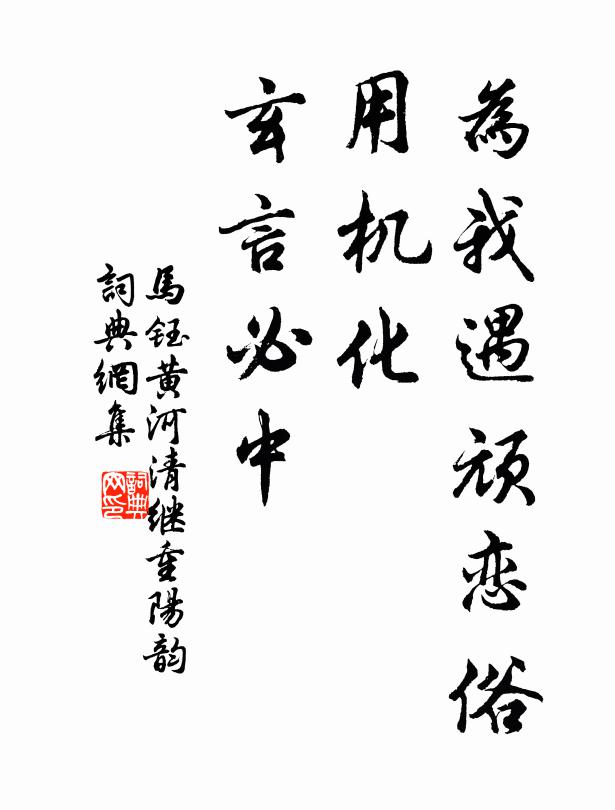 為我遇頑恋俗
用机化
玄言必中
馬鈺黄河清继重陽韵
詞典網集
詞典
网印